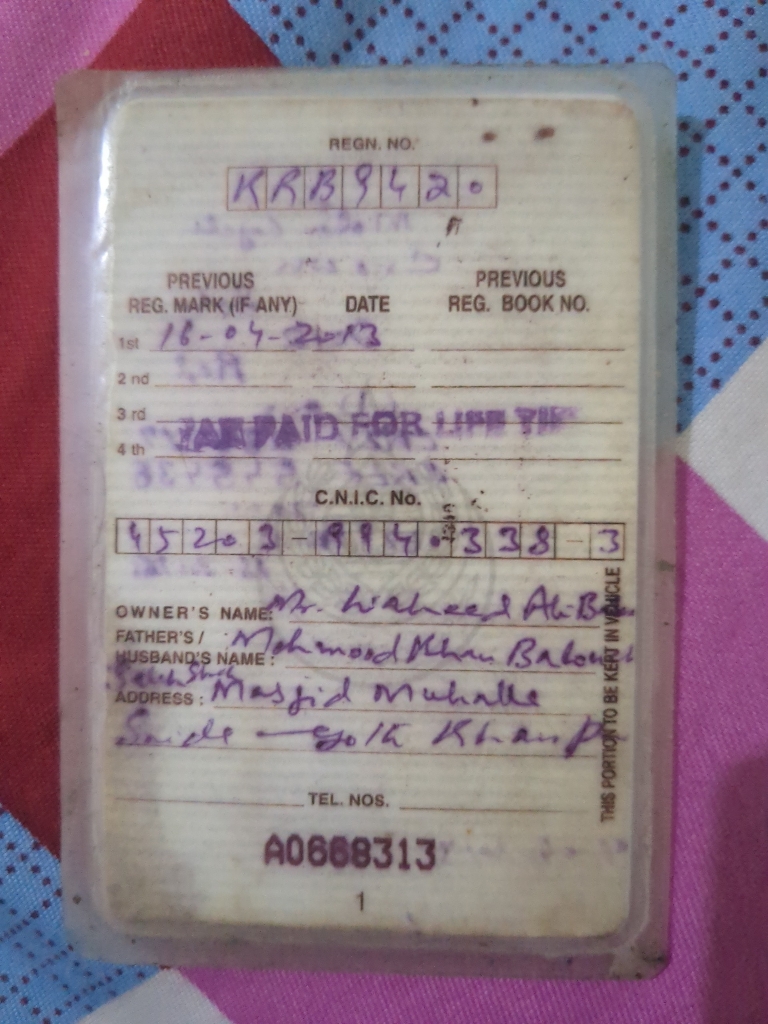 REGN. NO.
KRB9420
PREVIOUS REG. MARK (IF ANY) DATE PREVIOUS REG. BOOK NO.
1st 16-04-2013
2 nd
3 rd
TAX PAID FOR LIFE
4 th
C.N.I.C. No.
45203-9940338-3
OWNER'S NAME: Mr. Waheed Ali
FATHER'S / HUSBAND'S NAME : Mehmood Khan Baloch
ADDRESS : Masjid Muhalla
THIS PORTION TO BE KEPT IN VEHICLE
TEL. NOS.
A0668313
1